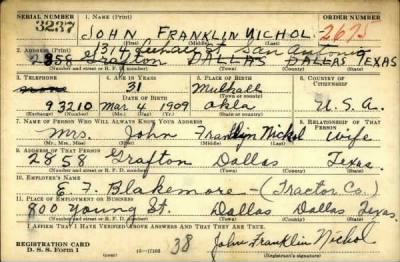 SERIAL NUMBER 1. NAME (Print) ORDER NUMBER
3237 JOHN FRANKLIN NICHOL 2675
(First) (Middle) (Last)
2. ADDRESS (Print) 1314 St San Antonio
2858 Grafton DALLAS DALLAS TEXAS
(Number and street or R. F. D. number) (Town) (County) (State)
3. TELEPHONE 4. AGE IN YEARS 5. PLACE OF BIRTH 6. COUNTRY OF CITIZENSHIP
none 31 Mulhall
DATE OF BIRTH (Town or county)
93210 Mar 4 1909 Okla U. S. A.
(Exchange) (Number) (Mo.) (Day) (Yr.) (State or country)
7. NAME OF PERSON WHO WILL ALWAYS KNOW YOUR ADDRESS 8. RELATIONSHIP OF THAT PERSON
Mrs. John Franklin Nichol wife
(Mr., Mrs., Miss) (First) (Middle) (Last)
9. ADDRESS OF THAT PERSON
2858 Grafton Dallas Texas.
(Number and street or R. F. D. number) (Town) (County) (State)
10. EMPLOYER'S NAME
E. F. Blakemore - (Tractor Co.)
11. PLACE OF EMPLOYMENT OR BUSINESS
800 Young St. Dallas Dallas Texas.
(Number and street or R. F. D. number) (Town) (County) (State)
I AFFIRM THAT I HAVE VERIFIED ABOVE ANSWERS AND THAT THEY ARE TRUE.
REGISTRATION CARD 38 John Franklin Nichol
D. S. S. Form 1 (Registrant's signature)